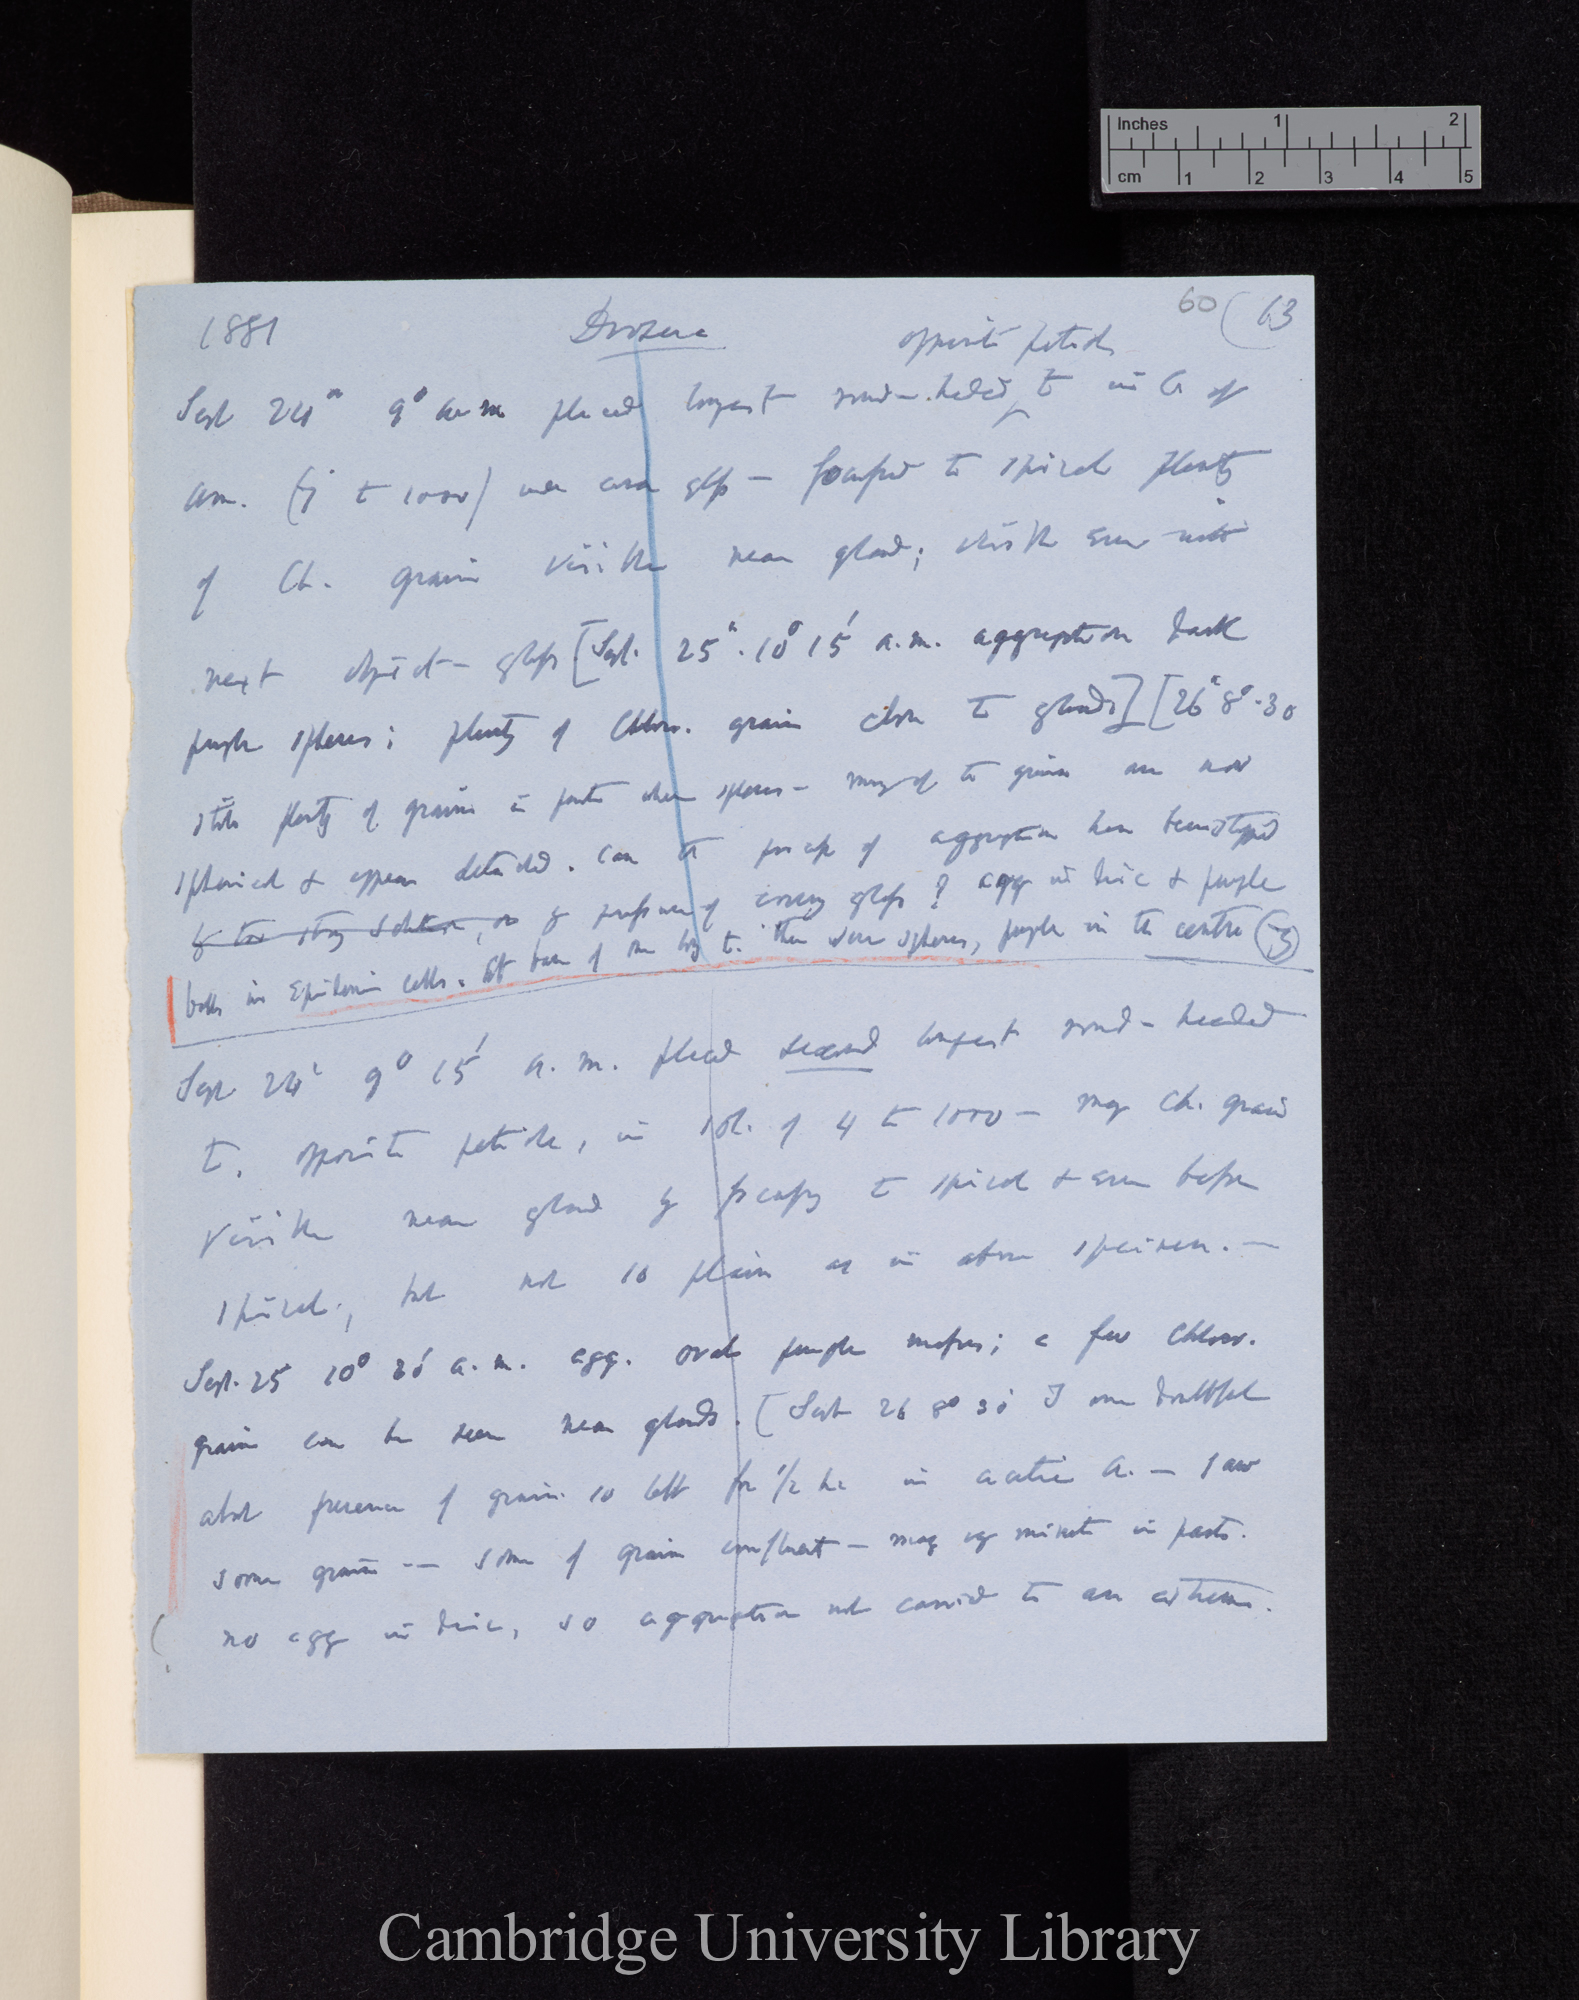 Inches 1 2
cm 1 2 3 4 5
60 (13
1881 Drosera opposite petiole
Sept 24th 9° a.m placed longest round-headed t in C. of
am. (7 to 1000) under cover glass — focussed to spiral plenty
of Ch. grains visible near gland; visible even with
next object-glass [Sept. 25th. 10° 15' a.m. aggregation dark
purple spheres; plenty of Chlor. grains close to glands] [26th 8°.30
still plenty of grains in parts where spheres — many of the grains are now
spherical & appear detached. Can the process of aggregation have been stopped
by too strong solution, or by pressure of covering glass? agg in disc & purple
balls in Epidermic cells. At base of one long t. there were spheres, purple in the centre
Sept. 24th 9° 15' a.m. placed second longest round-headed
t. opposite petiole, in sol. of 4 to 1000 — many Ch. grains
visible near gland by focussing to spiral & even before
spiral, but not so plain as in above specimen. —
Sept. 25 10° 30' a.m. agg. oval purple masses; a few Chlor.
grains can be seen near glands. [Sept 26 8° 30' I was doubtful
about presence of grains so left for 1/2 hr in acetic A. — saw
some grains -- some of grains confluent — many vy minute in parts.
no agg in disc, so aggregation not carried to an extreme.
Cambridge University Library